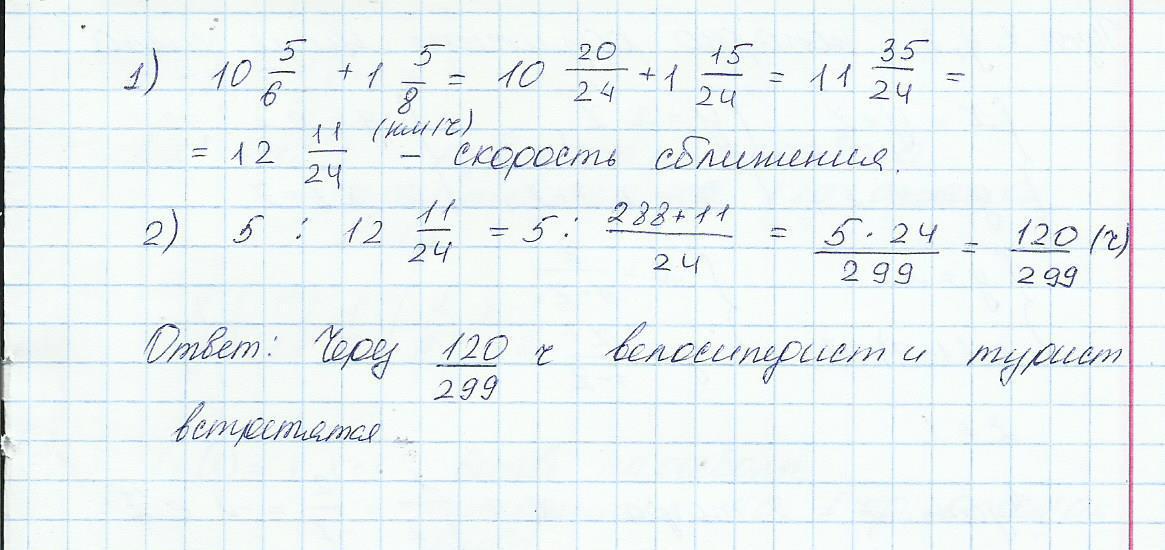 1) 10 5/6 + 1 5/8 = 10 20/24 + 1 15/24 = 11 35/24 =
= 12 11/24 (км/ч) – скорость сближения.
2) 5 : 12 11/24 = 5 : 288+11/24 = 5 · 24/299 = 120/299 (ч)
Ответ: Через 120/299 ч велосипедист и турист
встретятся